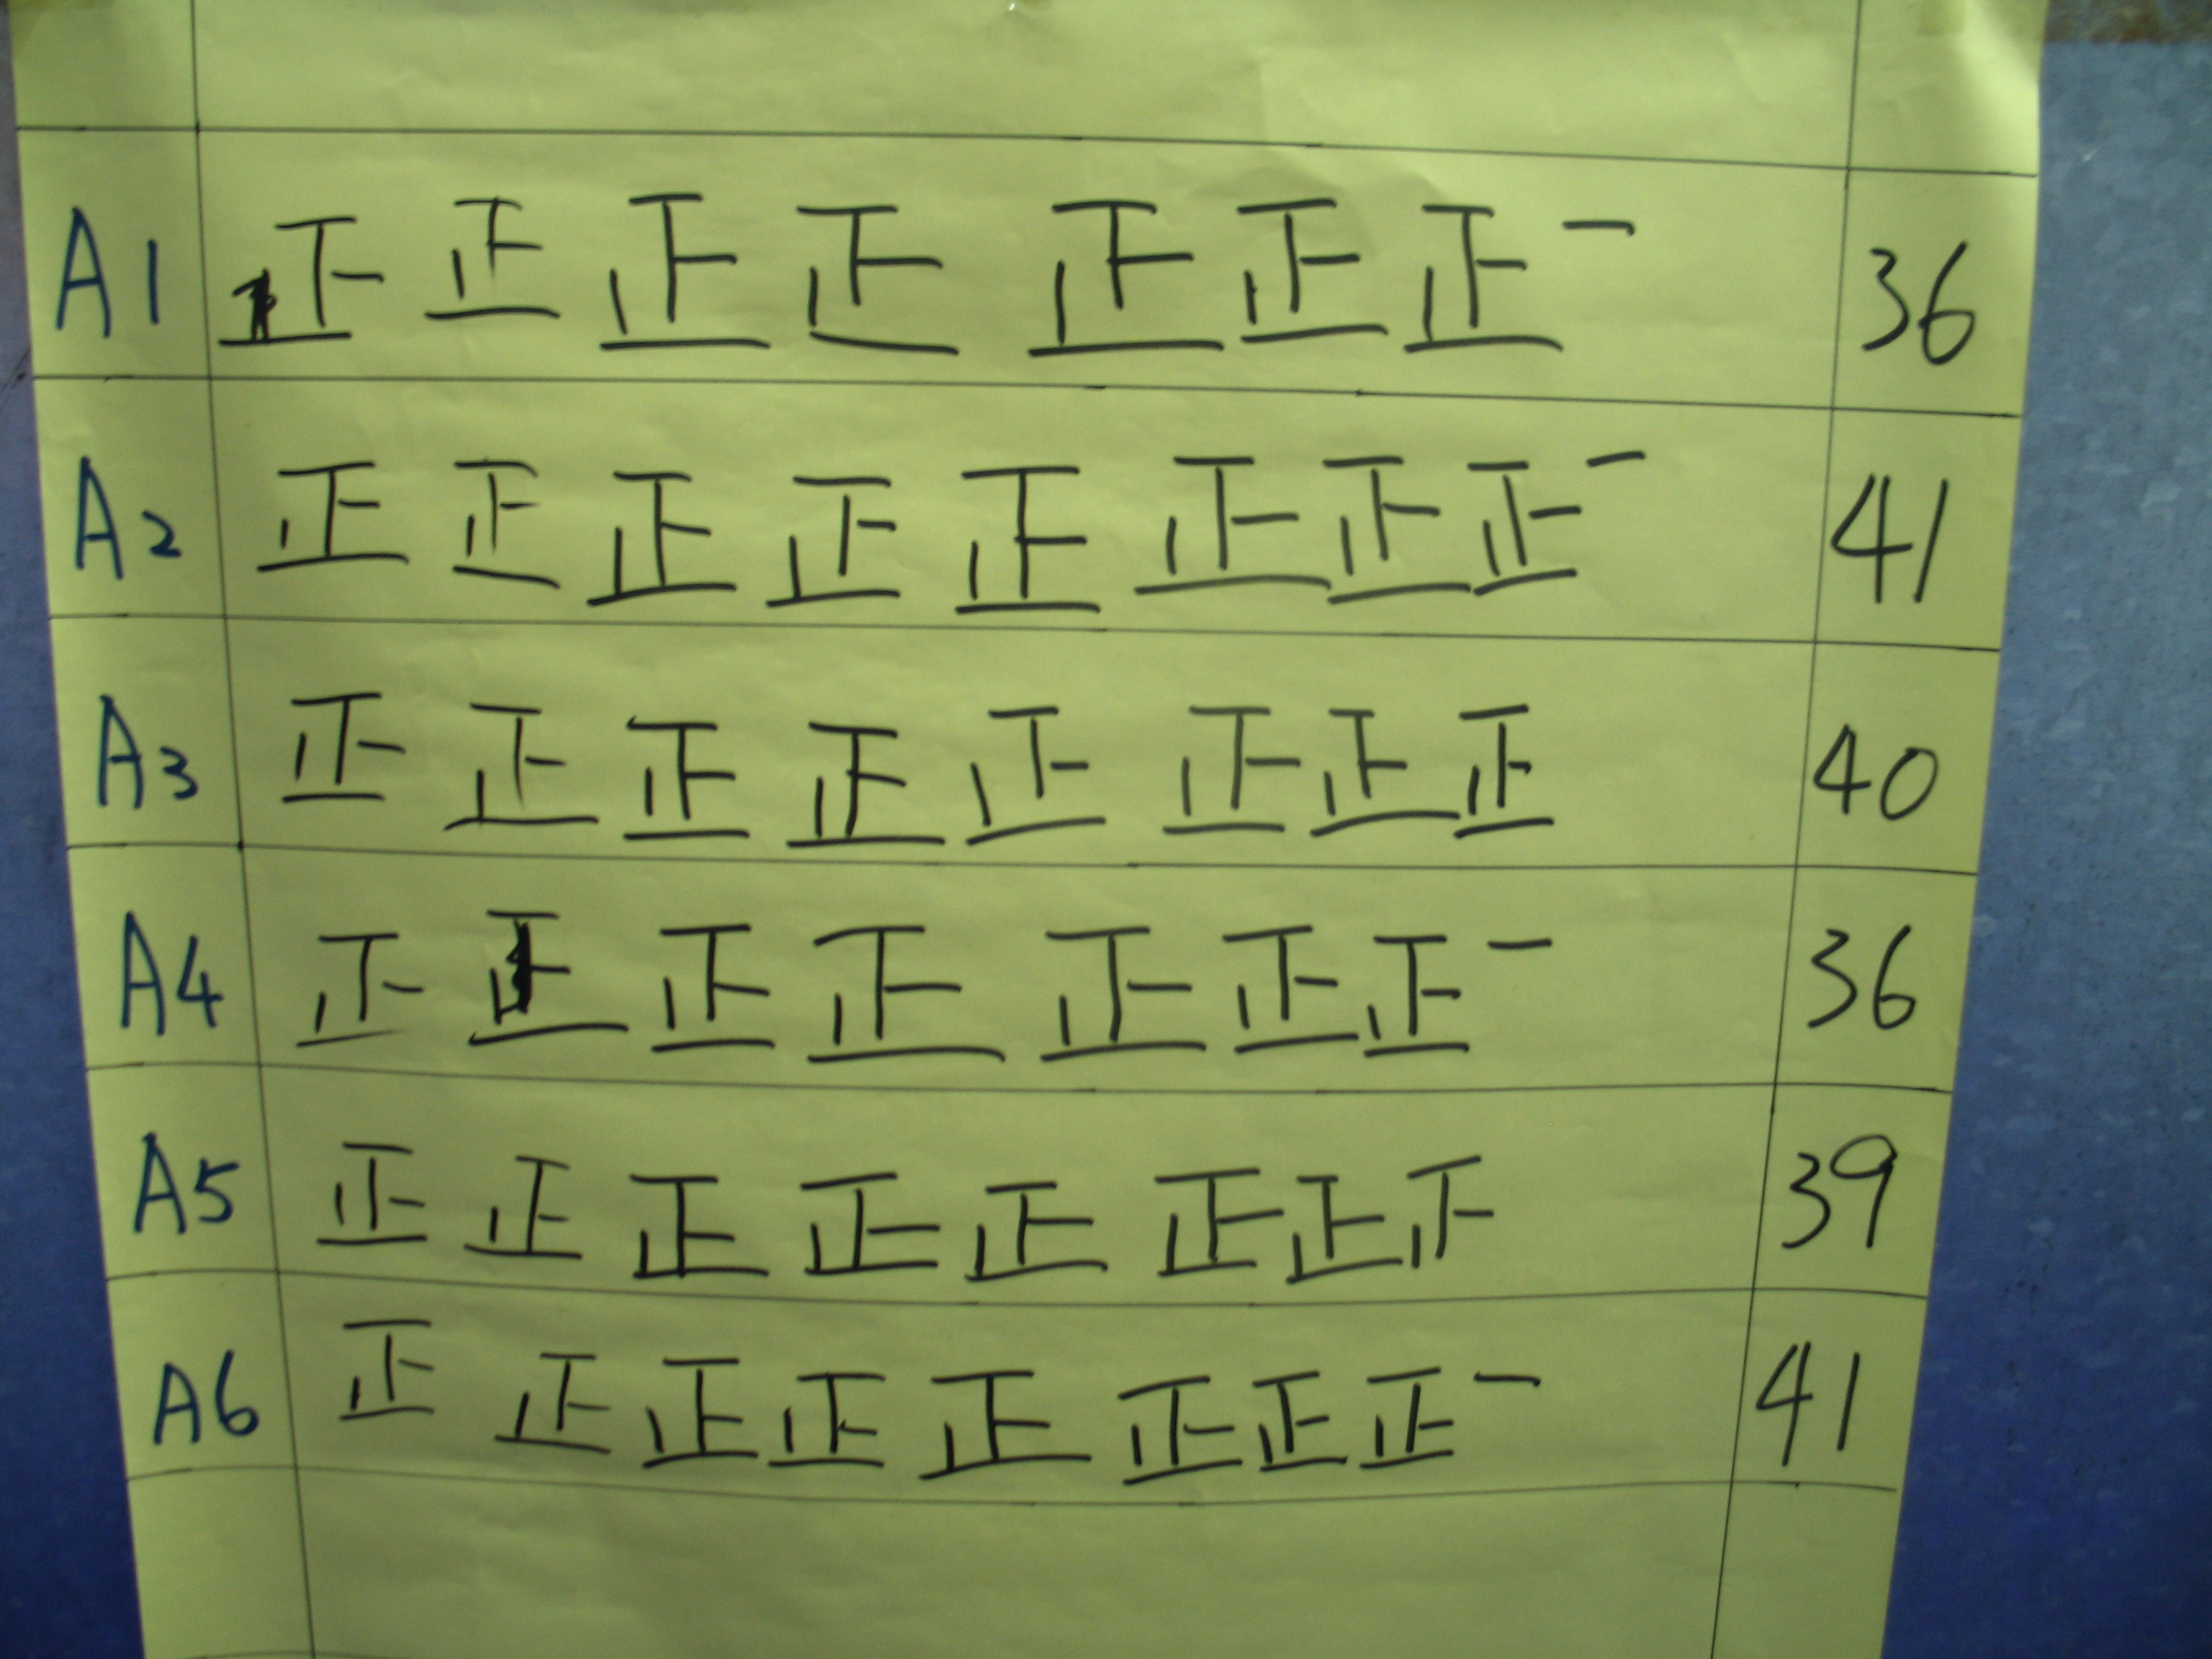 A1 正 正 正 正 正 正 正 一 36
A2 正 正 正 正 正 正 正 正 一 41
A3 正 正 正 正 正 正 正 正 40
A4 正 正 正 正 正 正 正 一 36
A5 正 正 正 正 正 正 正 39
A6 正 正 正 正 正 正 正 正 一 41